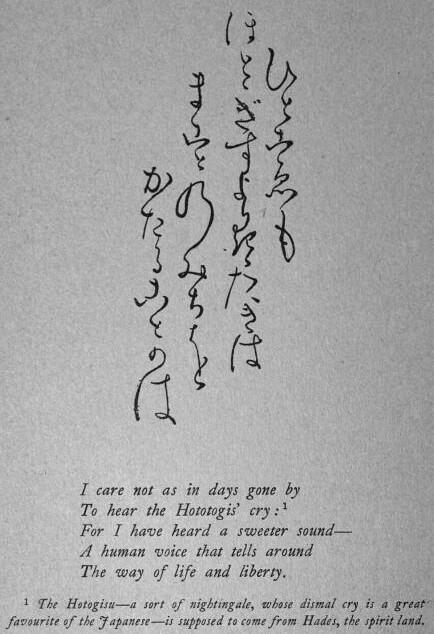 ひとこゑも
ほとゝぎすより聞たきは
まことのみちを
かたることのは
I care not as in days gone by
To hear the Hototogis' cry:¹
For I have heard a sweeter sound—
A human voice that tells around
The way of life and liberty.
¹ The Hotogisu—a sort of nightingale, whose dismal cry is a great
favourite of the Japanese—is supposed to come from Hades, the spirit land.